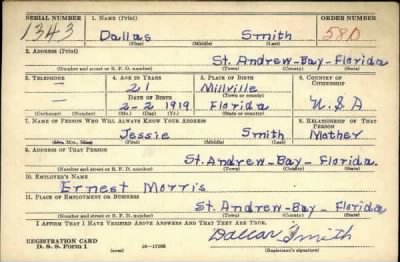 SERIAL NUMBER 1. NAME (Print) ORDER NUMBER
1343 Dallas Smith 580
(First) (Middle) (Last)
2. ADDRESS (Print)
St. Andrew-Bay-Florida
(Number and street or R. F. D. number) (Town) (County) (State)
3. TELEPHONE 4. AGE IN YEARS 5. PLACE OF BIRTH 6. COUNTRY OF CITIZENSHIP
— 21 Millville
DATE OF BIRTH (Town or county)
— 2-2 1919 Florida U.S.A
(Mo.) (Day) (Yr.) (State or country)
7. NAME OF PERSON WHO WILL ALWAYS KNOW YOUR ADDRESS 8. RELATIONSHIP OF THAT PERSON
Jessie Smith Mother
(Mr., Mrs., Miss) (First) (Middle) (Last)
9. ADDRESS OF THAT PERSON
St. Andrew-Bay-Florida
(Number and street or R. F. D. number) (Town) (County) (State)
10. EMPLOYER'S NAME
Ernest Morris
11. PLACE OF EMPLOYMENT OR BUSINESS
St. Andrew-Bay-Florida
(Number and street or R. F. D. number) (Town) (County) (State)
I AFFIRM THAT I HAVE VERIFIED ABOVE ANSWERS AND THAT THEY ARE TRUE.
REGISTRATION CARD Dallas Smith
D. S. S. Form 1 (Registrant's signature)